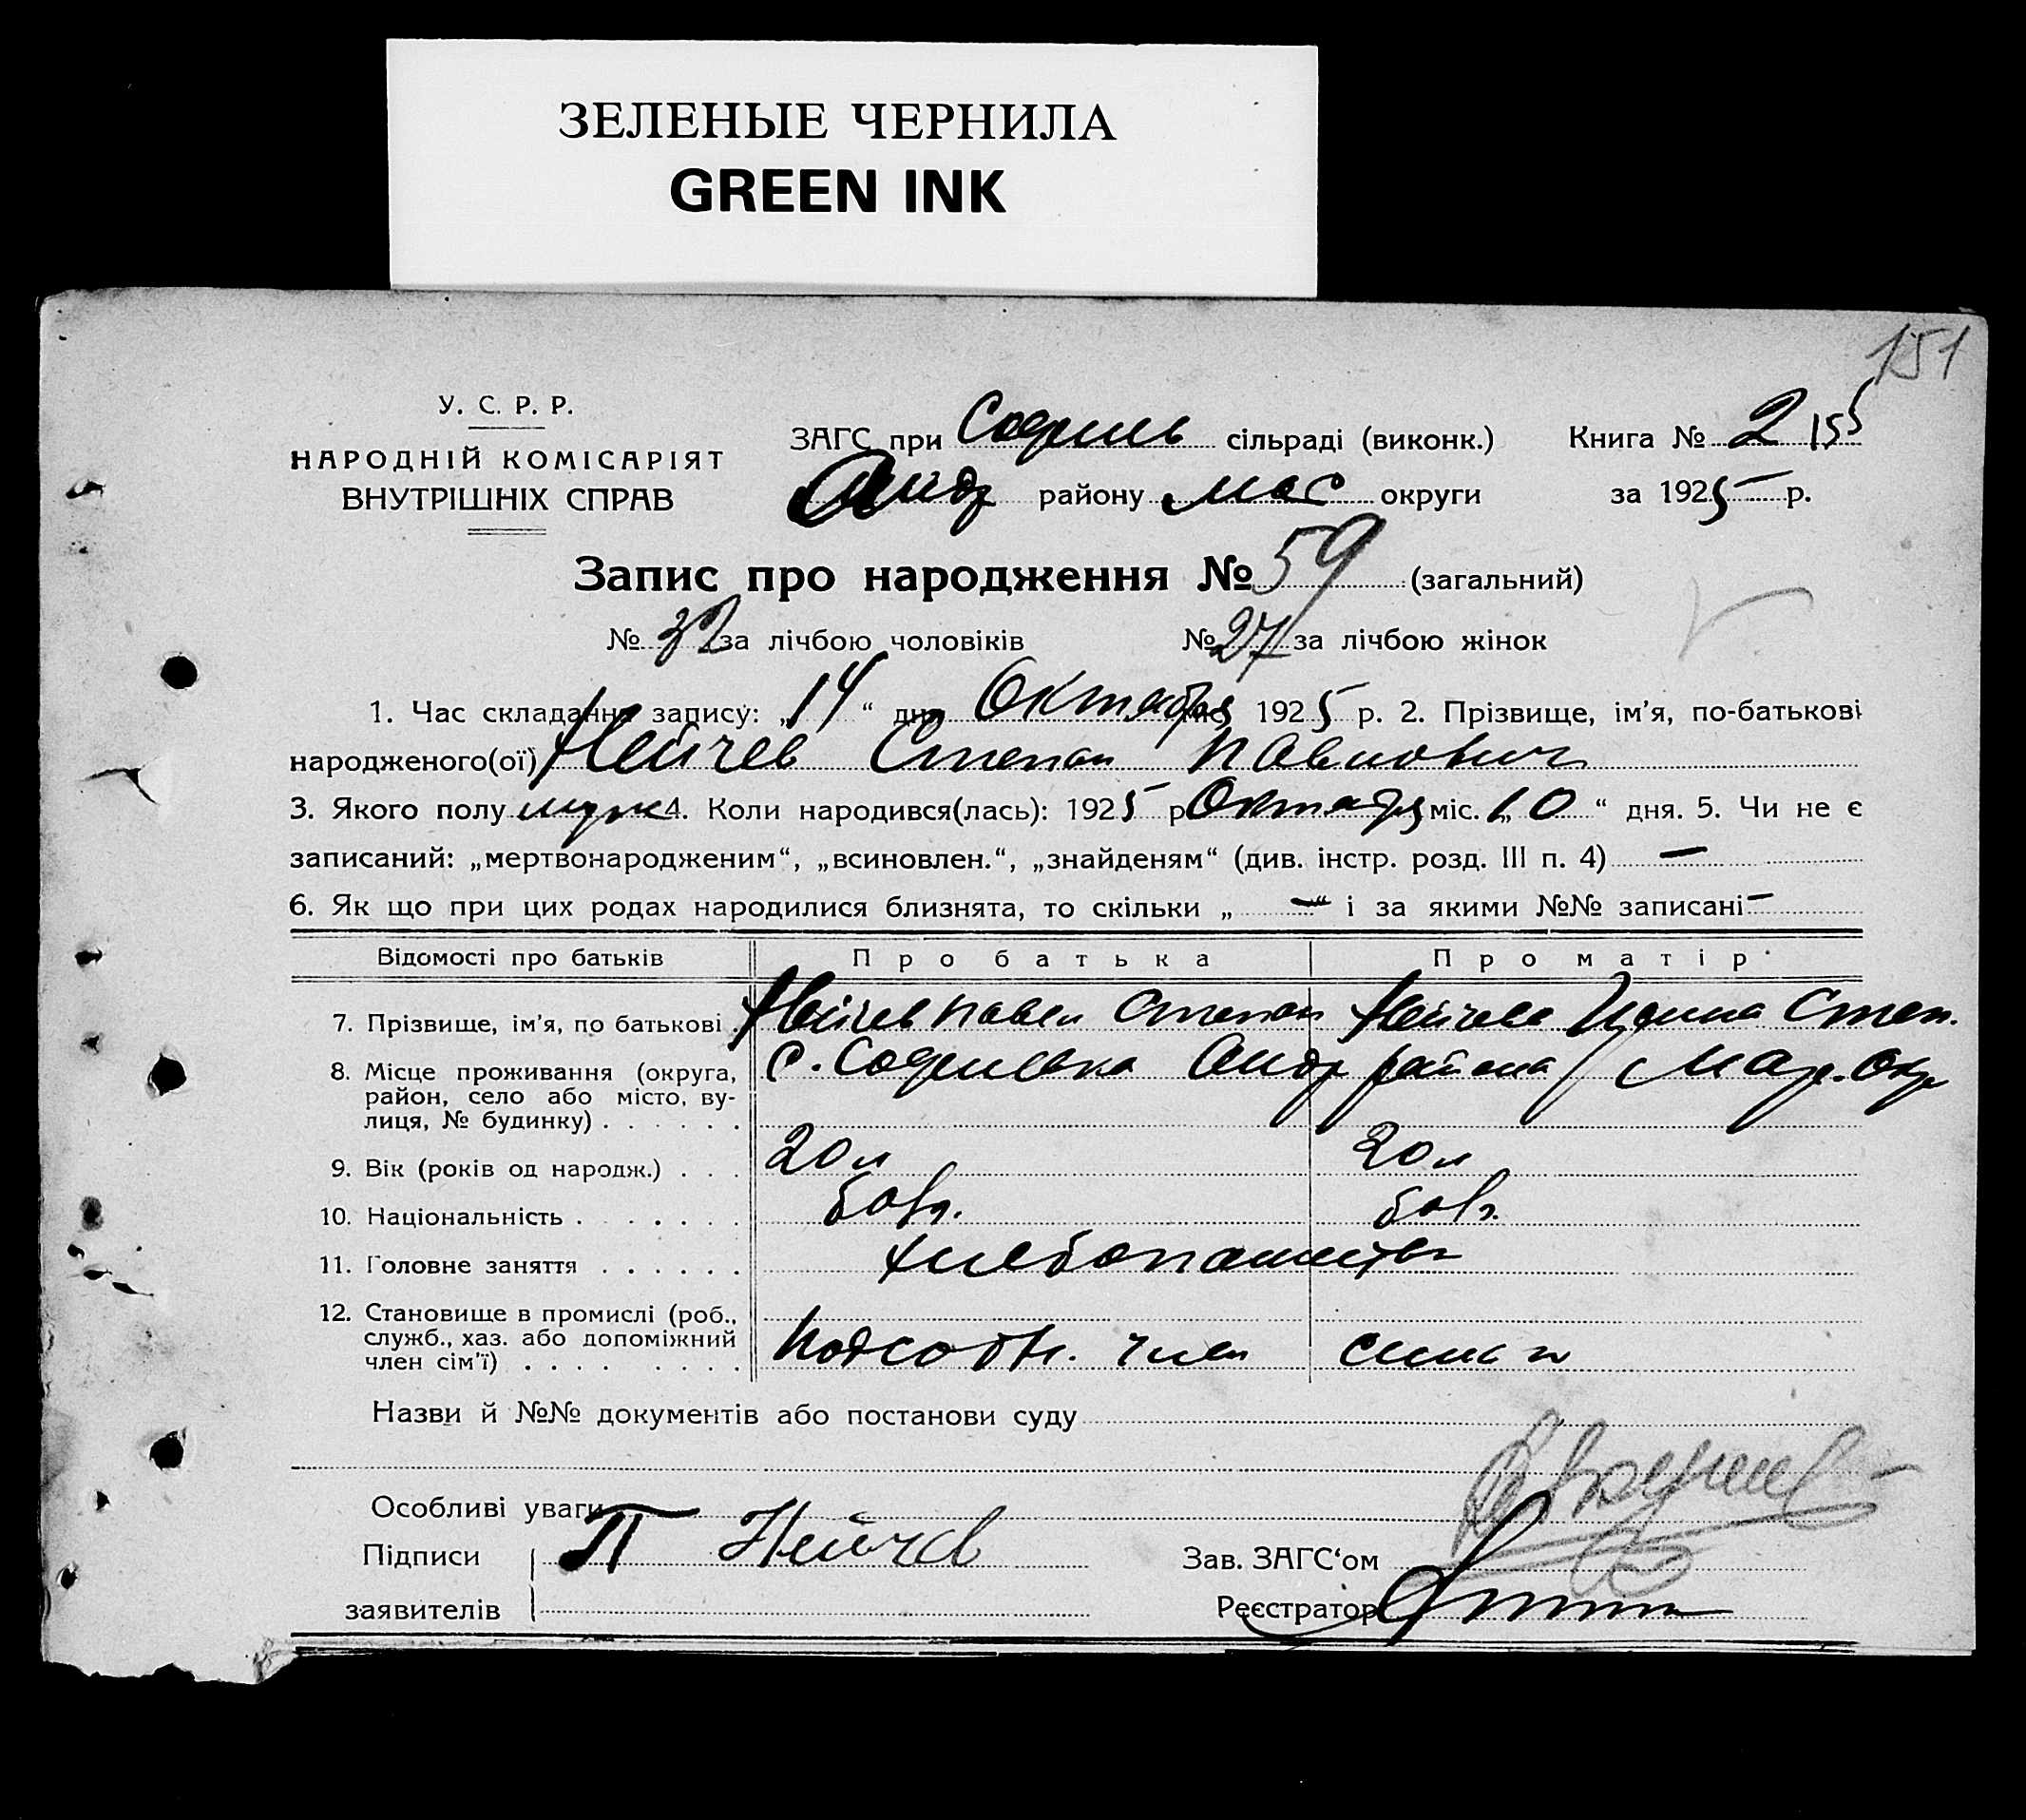 ЗЕЛЕНЫЕ ЧЕРНИЛА
GREEN INK
151
У. С. Р. Р.
НАРОДНІЙ КОМІСАРІЯТ
ВНУТРІШНІХ СПРАВ
ЗАГС при сільраді (виконк.)
Андр району округи
Книга № 2 155
за 1925 р.
Запис про народження № 59 (загальний)
№ 32 за лічбою чоловіків № 27 за лічбою жінок
1. Час складання запису: „14“ дня Октября міс. 1925 р. 2. Прізвище, ім’я, по-батькові
народженого(ої) Нейчев Степан Павлович
3. Якого полу муж 4. Коли народився(лась): 1925 р Октября міс. „10“ дня. 5. Чи не є
записаний: „мертвонародженим“, „всиновлен.“, „знайденям“ (див. інстр. розд. III п. 4) —
6. Як що при цих родах народилися близнята, то скільки „ — “ і за якими №№ записані —
Відомості про батьків Про батька Про матір
7. Прізвище, ім’я, по батькові . Нейчев Павел Степан Нейчева Степ.
8. Місце проживання (округа, район, село або місто, вулиця, № будинку) . . . . . . с. Софиевка Андр района Мар. Окр
9. Вік (років од народж.) . . . 20 л 20 л
10. Національність . . . . . . . болг. болг.
11. Головне заняття . . . . . . хлебопашество
12. Становище в промислі (роб., служб., хаз. або допоміжний член сім’ї) . . . . . . . . Подсобн. член семьи
Назви й №№ документів або постанови суду
Особливі уваги
Підписи
заявителів
П Нейчев
Зав. ЗАГС‘ом
Реєстратор